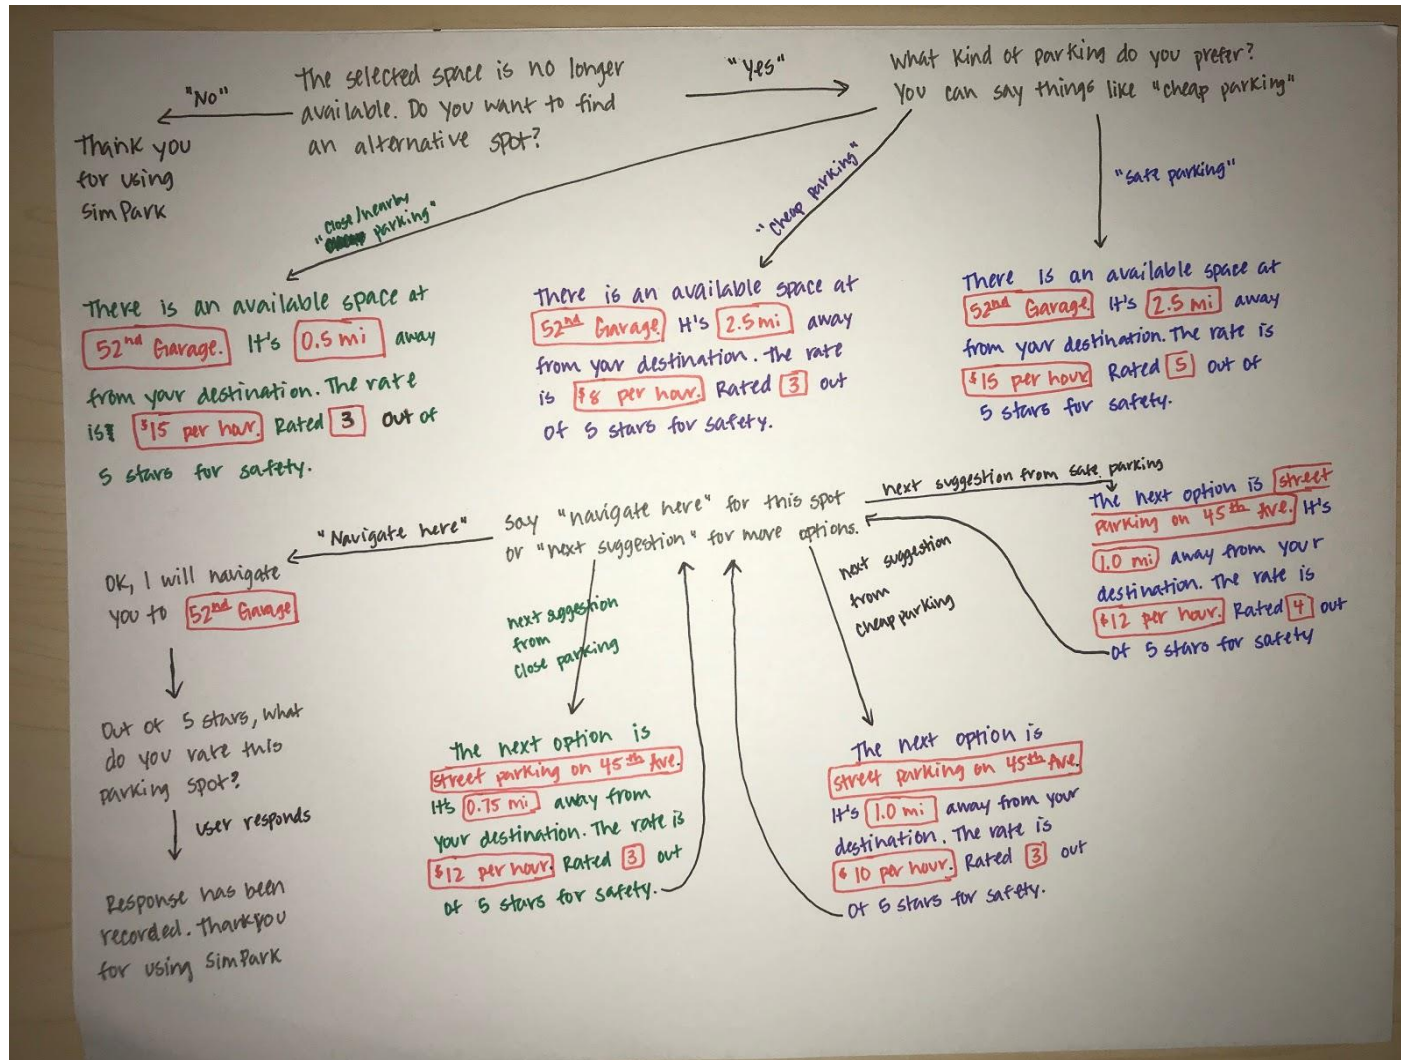 The selected space is no longer
available. Do you want to find
an alternative spot?
"No"
Thank you
for using
SimPark
"Yes"
What kind of parking do you prefer?
You can say things like "cheap parking"
"close/nearby
parking"
"cheap parking"
"safe parking"
There is an available space at
52nd Garage. It's 0.5 mi away
from your destination. The rate
is $15 per hour. Rated 3 out of
5 stars for safety.
There is an available space at
52nd Garage. It's 2.5 mi away
from your destination. The rate
is $8 per hour. Rated 3 out
of 5 stars for safety.
There is an available space at
52nd Garage. It's 2.5 mi away
from your destination. The rate is
$15 per hour Rated 5 out of
5 stars for safety.
Say "navigate here" for this spot
or "next suggestion" for more options.
"Navigate here"
OK, I will navigate
you to 52nd Garage
Out of 5 stars, what
do you rate this
parking spot?
user responds
Response has been
recorded. Thankyou
for using SimPark
next suggestion
from
close parking
The next option is
street parking on 45th Ave.
It's 0.75 mi away from
your destination. The rate is
$12 per hour. Rated 3 out
of 5 stars for safety.
next suggestion
from
cheap parking
The next option is
street parking on 45th Ave.
It's 1.0 mi away from your
destination. The rate is
$10 per hour. Rated 3 out
of 5 stars for safety.
next suggestion from safe parking
The next option is street
parking on 45th Ave. It's
1.0 mi away from your
destination. The rate is
$12 per hour. Rated 4 out
of 5 stars for safety